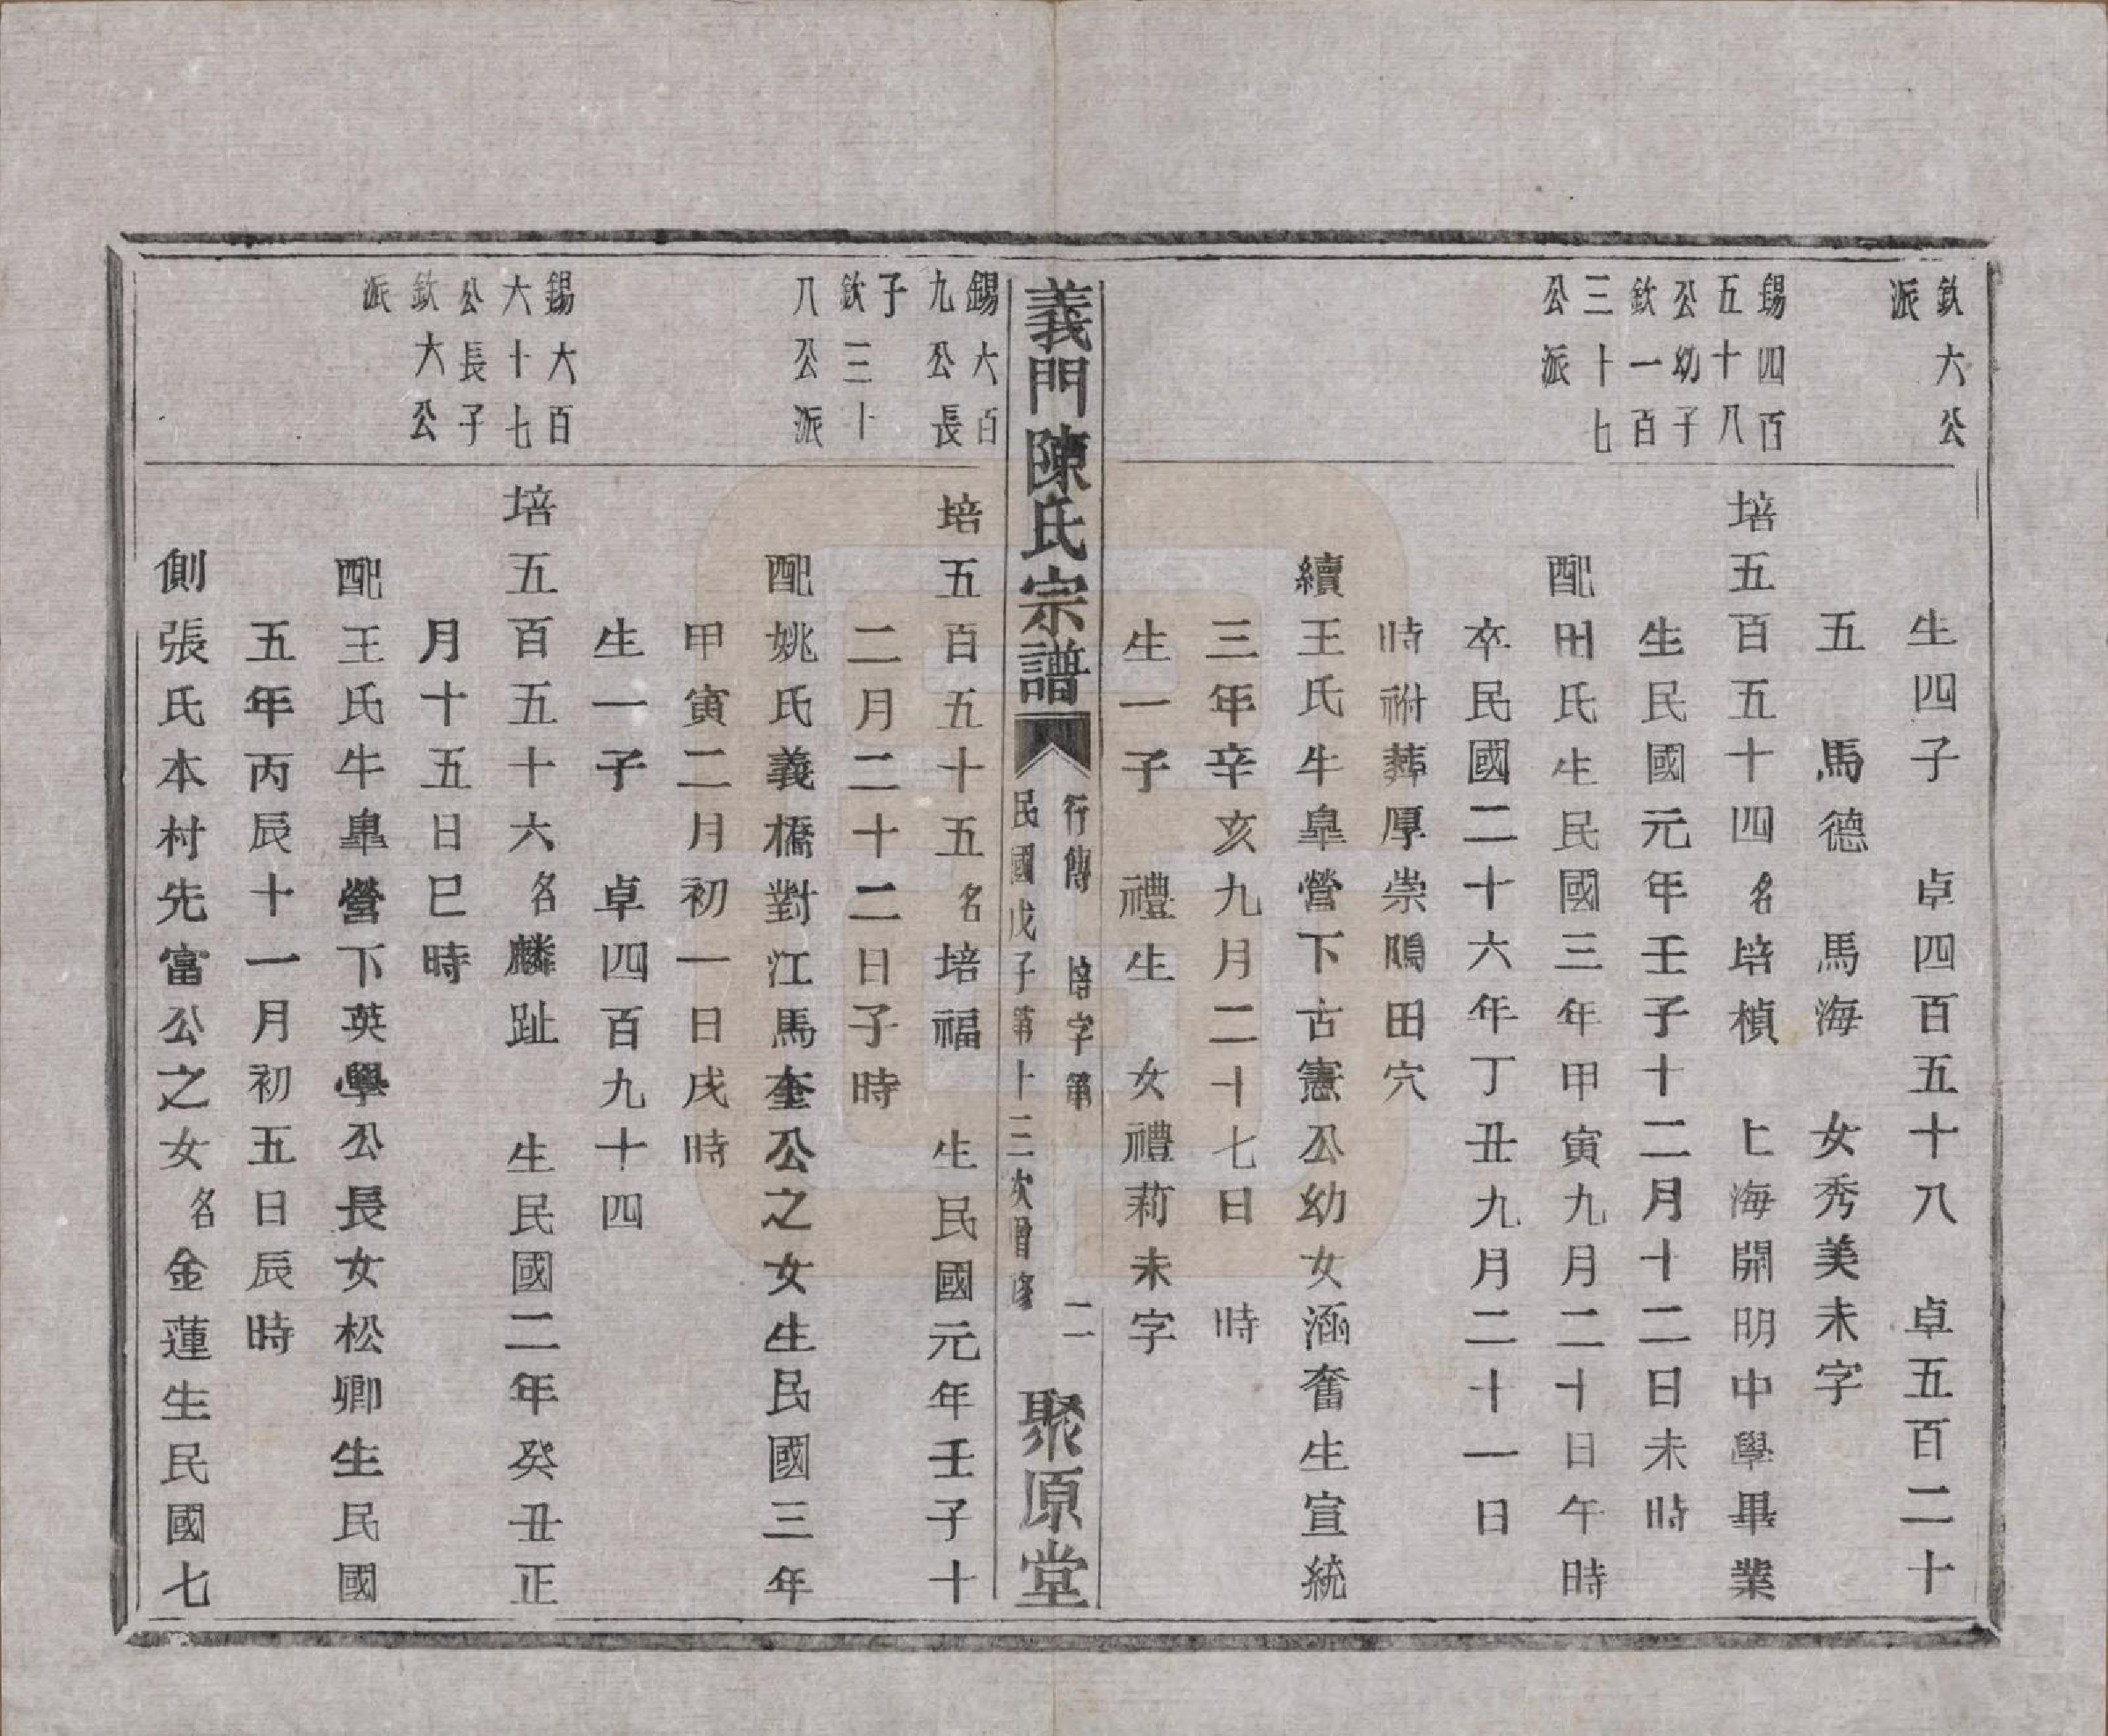 欽大公
派
生四子　卓四百五十八　卓五百二十
五　馬德　馬海　女秀美未字
錫四百
五十八
公幼子
欽一百
三十七
公派
培五百五十四名培楨　上海開明中學畢業
生民國元年壬子十二月十二日未時
配田氏生民國三年甲寅九月二十日午時
卒民國二十六年丁丑九月二十一日
時祔葬厚崇隖田穴
續王氏牛皐營下古憲公幼女涵奮生宣統
三年辛亥九月二十七日　時
生一子　禮生　女禮莉未字
義門陳氏宗譜
行傳　培字第　二
民國戊子第十三次增修
聚原堂
錫大百
九公長
子
欽三十
八公派
培五百五十五名培福　生民國元年壬子十
二月二十二日子時
配姚氏義橋對江馬奎公之女生民國三年
甲寅二月初一日戌時
生一子　卓四百九十四
錫大百
六十七
公長子
欽大公
派
培五百五十六名麟趾　生民國二年癸丑正
月十五日巳時
配王氏牛皐營下英學公長女松卿生民國
五年丙辰十一月初五日辰時
側張氏本村先富公之女名金蓮生民國七